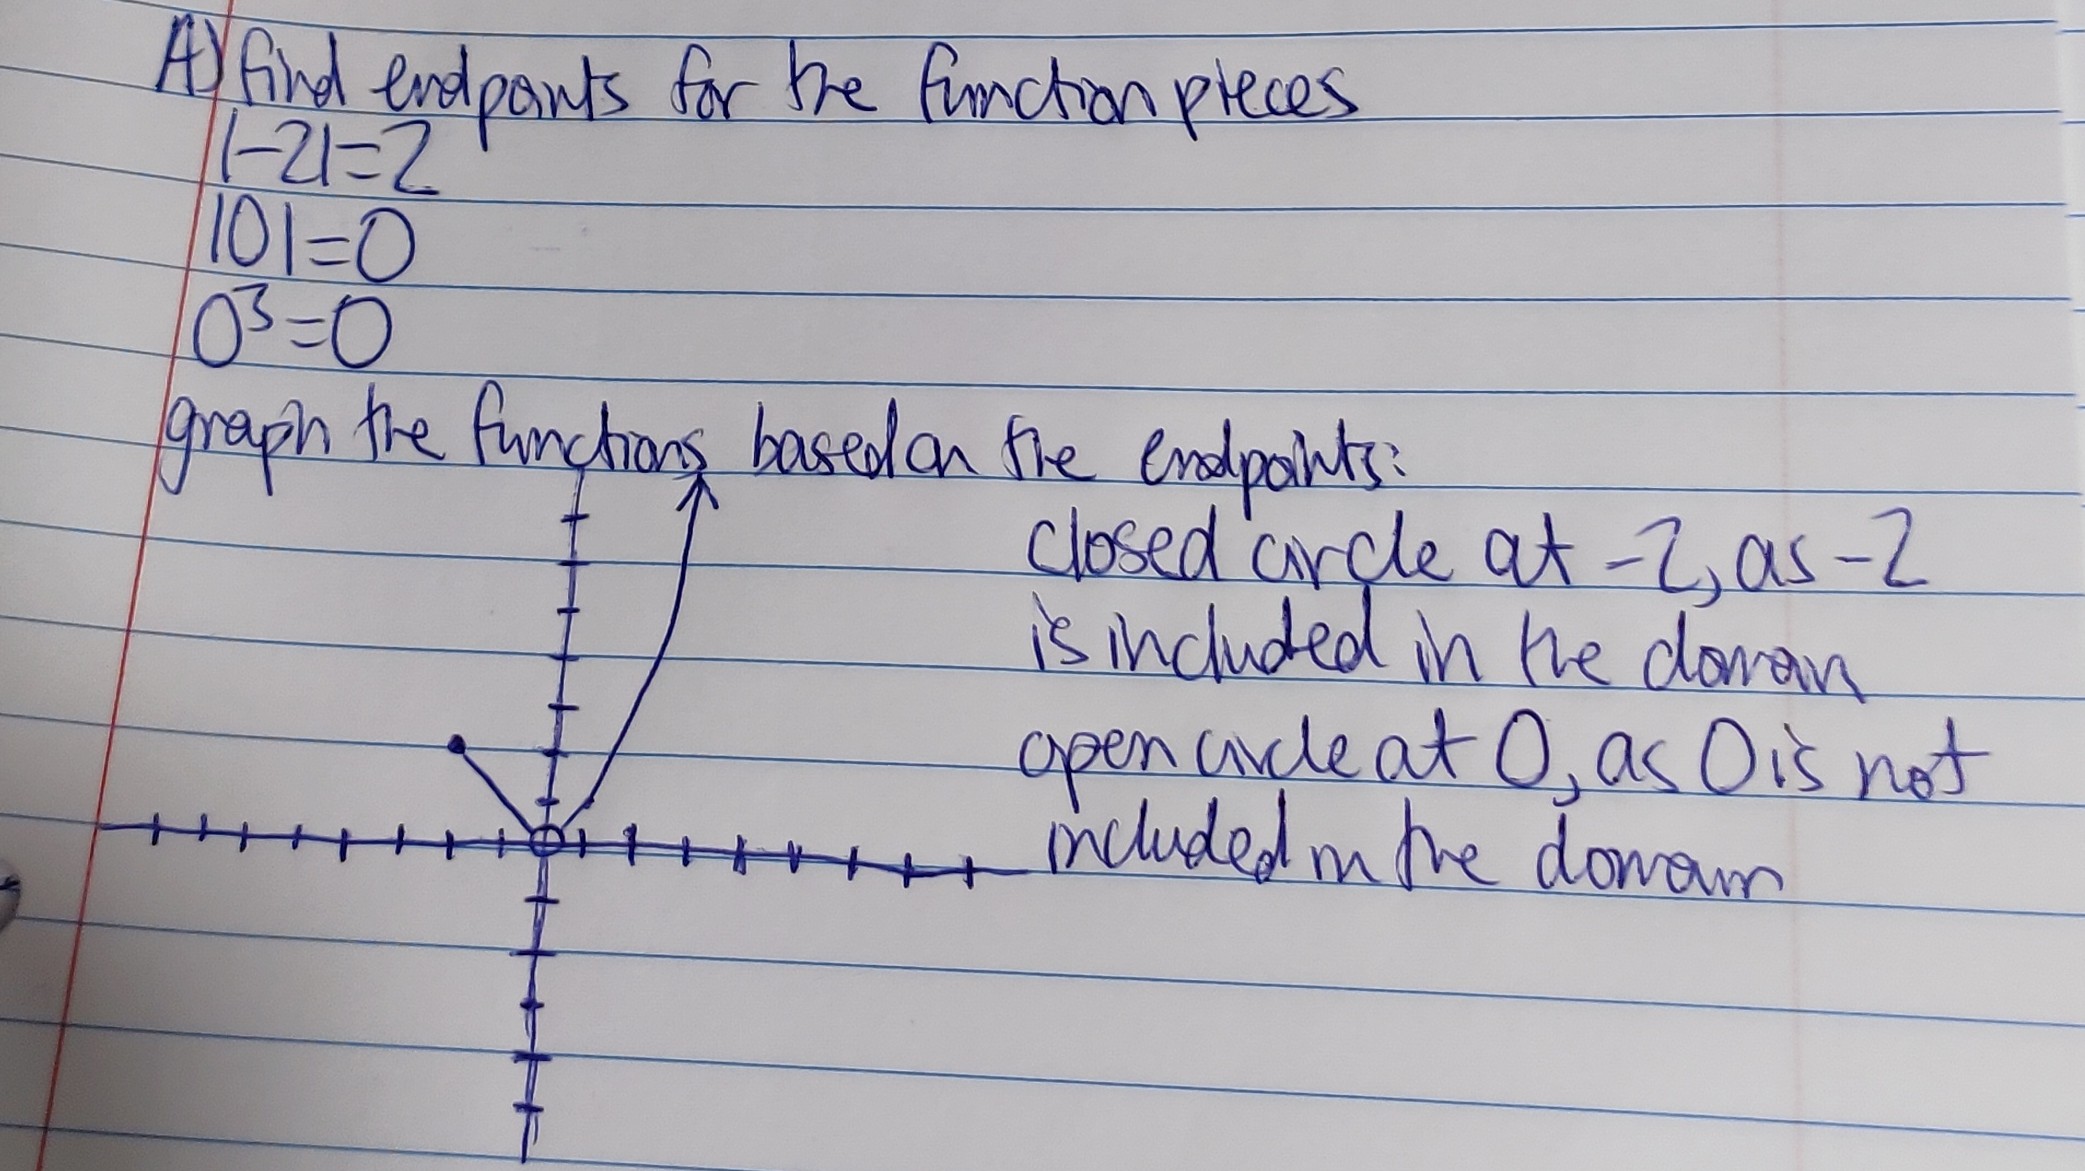 A) find endpoints for the function pieces
|-2|=2
|0|=0
0³=0
graph the functions based on the endpoints:
closed circle at -2, as -2
is included in the domain
open circle at 0, as 0 is not
included in the domain